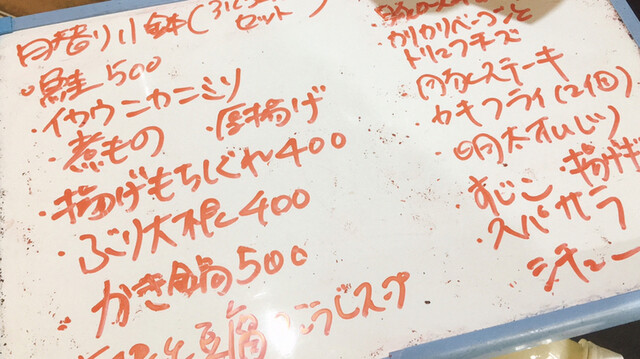 日替り小鉢(
セット)
・鮭500
・イカウニカニミソ
・煮もの ・厚揚げ
・揚げもちしぐれ400
・ぶり大根400
・かき鍋500
豆腐 こうじスープ
カリカリベーコンと
トリュフチーズ
ステーキ
・カキフライ(2個)
・明太
・すじこ ・揚げギ
・スパサラ
シチュー